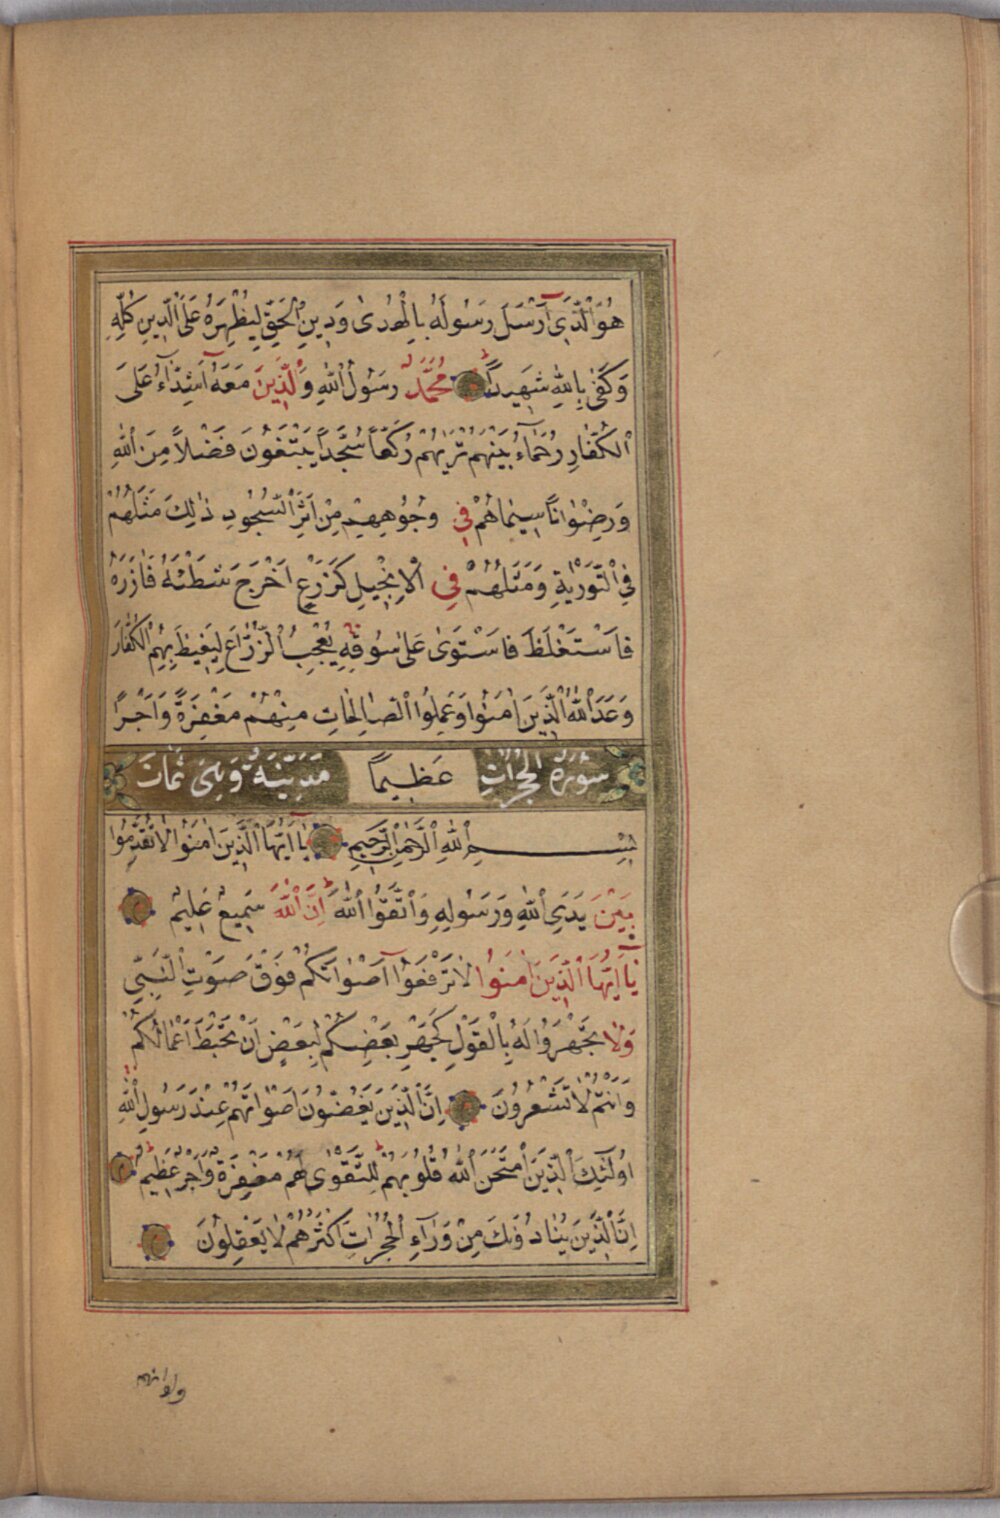 هُوَ الَّذِي أَرْسَلَ رَسُولَهُ بِالْهُدٰى وَدِينِ الْحَقِّ لِيُظْهِرَهُ عَلَى الدِّينِ كُلِّهِ
وَكَفٰى بِاللّٰهِ شَهِيدًا مُحَمَّدٌ رَسُولُ اللّٰهِ وَالَّذِينَ مَعَهُ أَشِدَّآءُ عَلَى
الْكُفَّارِ رُحَمَآءُ بَيْنَهُمْ تَرٰيهُمْ رُكَّعًا سُجَّدًا يَبْتَغُونَ فَضْلًا مِنَ اللّٰهِ
وَرِضْوَانًا سِيمَاهُمْ فِي وُجُوهِهِمْ مِنْ اَثَرِ السُّجُودِ ذٰلِكَ مَثَلُهُمْ
فِي التَّوْرٰيةِ وَمَثَلُهُمْ فِي الْاِنْجِيلِ كَزَرْعٍ اَخْرَجَ شَطْئَهُ فَاٰزَرَهُ
فَاسْتَغْلَظَ فَاسْتَوٰى عَلٰى سُوقِهِ يُعْجِبُ الزُّرَّاعَ لِيَغِيظَ بِهِمُ الْكُفَّارَ
وَعَدَ اللّٰهُ الَّذِينَ اٰمَنُوا وَعَمِلُوا الصَّالِحَاتِ مِنْهُمْ مَغْفِرَةً وَاَجْرًا
سُورَةُ الْحُجُرَاتِ عَظِيمًا مَدَنِيَّةٌ وَهِىَ ثمَان
بِسْمِ اللّٰهِ الرَّحْمٰنِ الرَّحِيمِ يَا اَيُّهَا الَّذِينَ اٰمَنُوا لَا تُقَدِّمُوا
بَيْنَ يَدَيِ اللّٰهِ وَرَسُولِهِ وَاتَّقُوا اللّٰهَ اِنَّ اللّٰهَ سَمِيعٌ عَلِيمٌ
يَا اَيُّهَا الَّذِينَ اٰمَنُوا لَا تَرْفَعُوا اَصْوَاتَكُمْ فَوْقَ صَوْتِ النَّبِيِّ
وَلَا تَجْهَرُوا لَهُ بِالْقَوْلِ كَجَهْرِ بَعْضِكُمْ لِبَعْضٍ اَنْ تَحْبَطَ اَعْمَالُكُمْ
وَاَنْتُمْ لَا تَشْعُرُونَ اِنَّ الَّذِينَ يَغُضُّونَ اَصْوَاتَهُمْ عِنْدَ رَسُولِ اللّٰهِ
اُولٰئِكَ الَّذِينَ امْتَحَنَ اللّٰهُ قُلُوبَهُمْ لِلتَّقْوٰى لَهُمْ مَغْفِرَةٌ وَاَجْرٌ عَظِيمٌ
اِنَّ الَّذِينَ يُنَادُونَكَ مِنْ وَرَآءِ الْحُجُرَاتِ اَكْثَرُهُمْ لَا يَعْقِلُونَ
ولو انهم